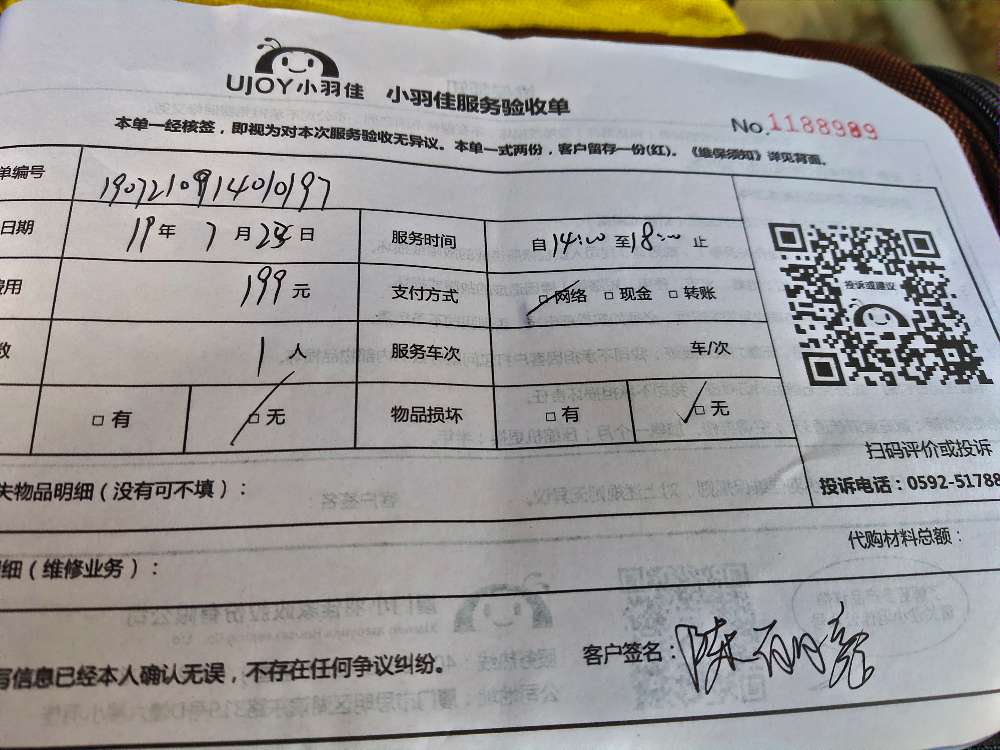 UJOY小羽佳 小羽佳服务验收单
No.1188989
本单一经核签，即视为对本次服务验收无异议。本单一式两份，客户留存一份(红)。《维保须知》详见背面。
单编号 19072109914010197
日期 19年 7月 25日 服务时间 自14:00至18:00止
费用 199元 支付方式 □网络 □现金 □转账
数 1人 服务车次 车/次
□有 □无 物品损坏 □有 □无
投诉或建议
扫码评价或投诉
失物品明细（没有可不填）：
投诉电话：0592-51788
代购材料总额：
细（维修业务）：
写信息已经本人确认无误，不存在任何争议纠纷。
客户签名：陈